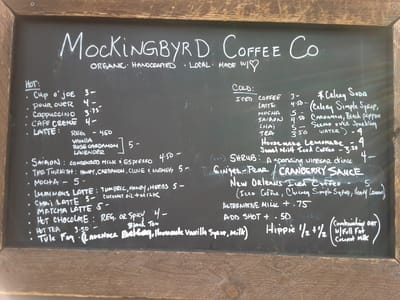 MOCKINGBYRD COFFEE CO
ORGANIC · HANDCRAFTED · LOCAL · MADE W/♡
HOT:
· CUP O' JOE 3-
· POUR OVER 4-
· CAPPUCCINO 3.75
· CAFE CREME 4-
· LATTE: REG. - 4.50
VANILLA
ROSE CARDAMOM
LAVENDER
5-
· SAIGON: CONDENSED MILK & ESPRESSO 4.50-
· THE TURKISH: HONEY, CARDAMOM, CLOVE & NUTMEG 5-
· MOCHA - 5-
· LUMINOUS LATTE: TUMERIC, HONEY, HERBS 5-
· CHAI LATTE 5- COCONUT OIL & MILK
· MATCHA LATTE 5-
· HOT CHOCOLATE: REG. OR SPICY 4-
· HOT TEA 3.50-
· TULE FOG: (LAVENDER EARL GREY, HOMEMADE VANILLA SYRUP, MILK)
COLD:
ICED COFFEE 3-
LATTE 4.50-
MOCHA 5-
SAIGON 4.50
CHAI 5-
TEA 3.50
* CELERY SODA
(CELERY SIMPLE SYRUP,
CARDAMOM, BLACK PEPPER
SPARKLING
WATER) - 4
HOMEMADE LEMONADE - 4
ICED COFFEE - 3.50
SHRUB: A SPARKLING VINEGAR DRINK 4-
GINGER-PEAR / CRANBERRY SAUCE
NEW ORLEANS ICED COFFEE - 5
(ICED COFFEE, CHICORY SIMPLE SYRUP,
ALTERNATIVE MILK + .75
ADD SHOT + .50
HIPPIE 1/2 + 1/2
W/ FULL FAT
COCONUT MILK)